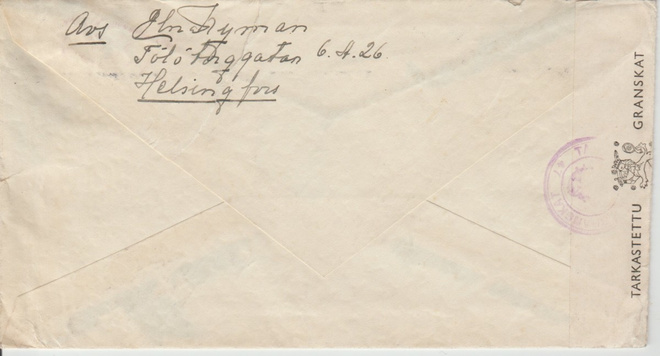 Avs Eln Nyman
Tölö Torggatan 6.A.26
Helsingfors
TARKASTETTU GRANSKAT